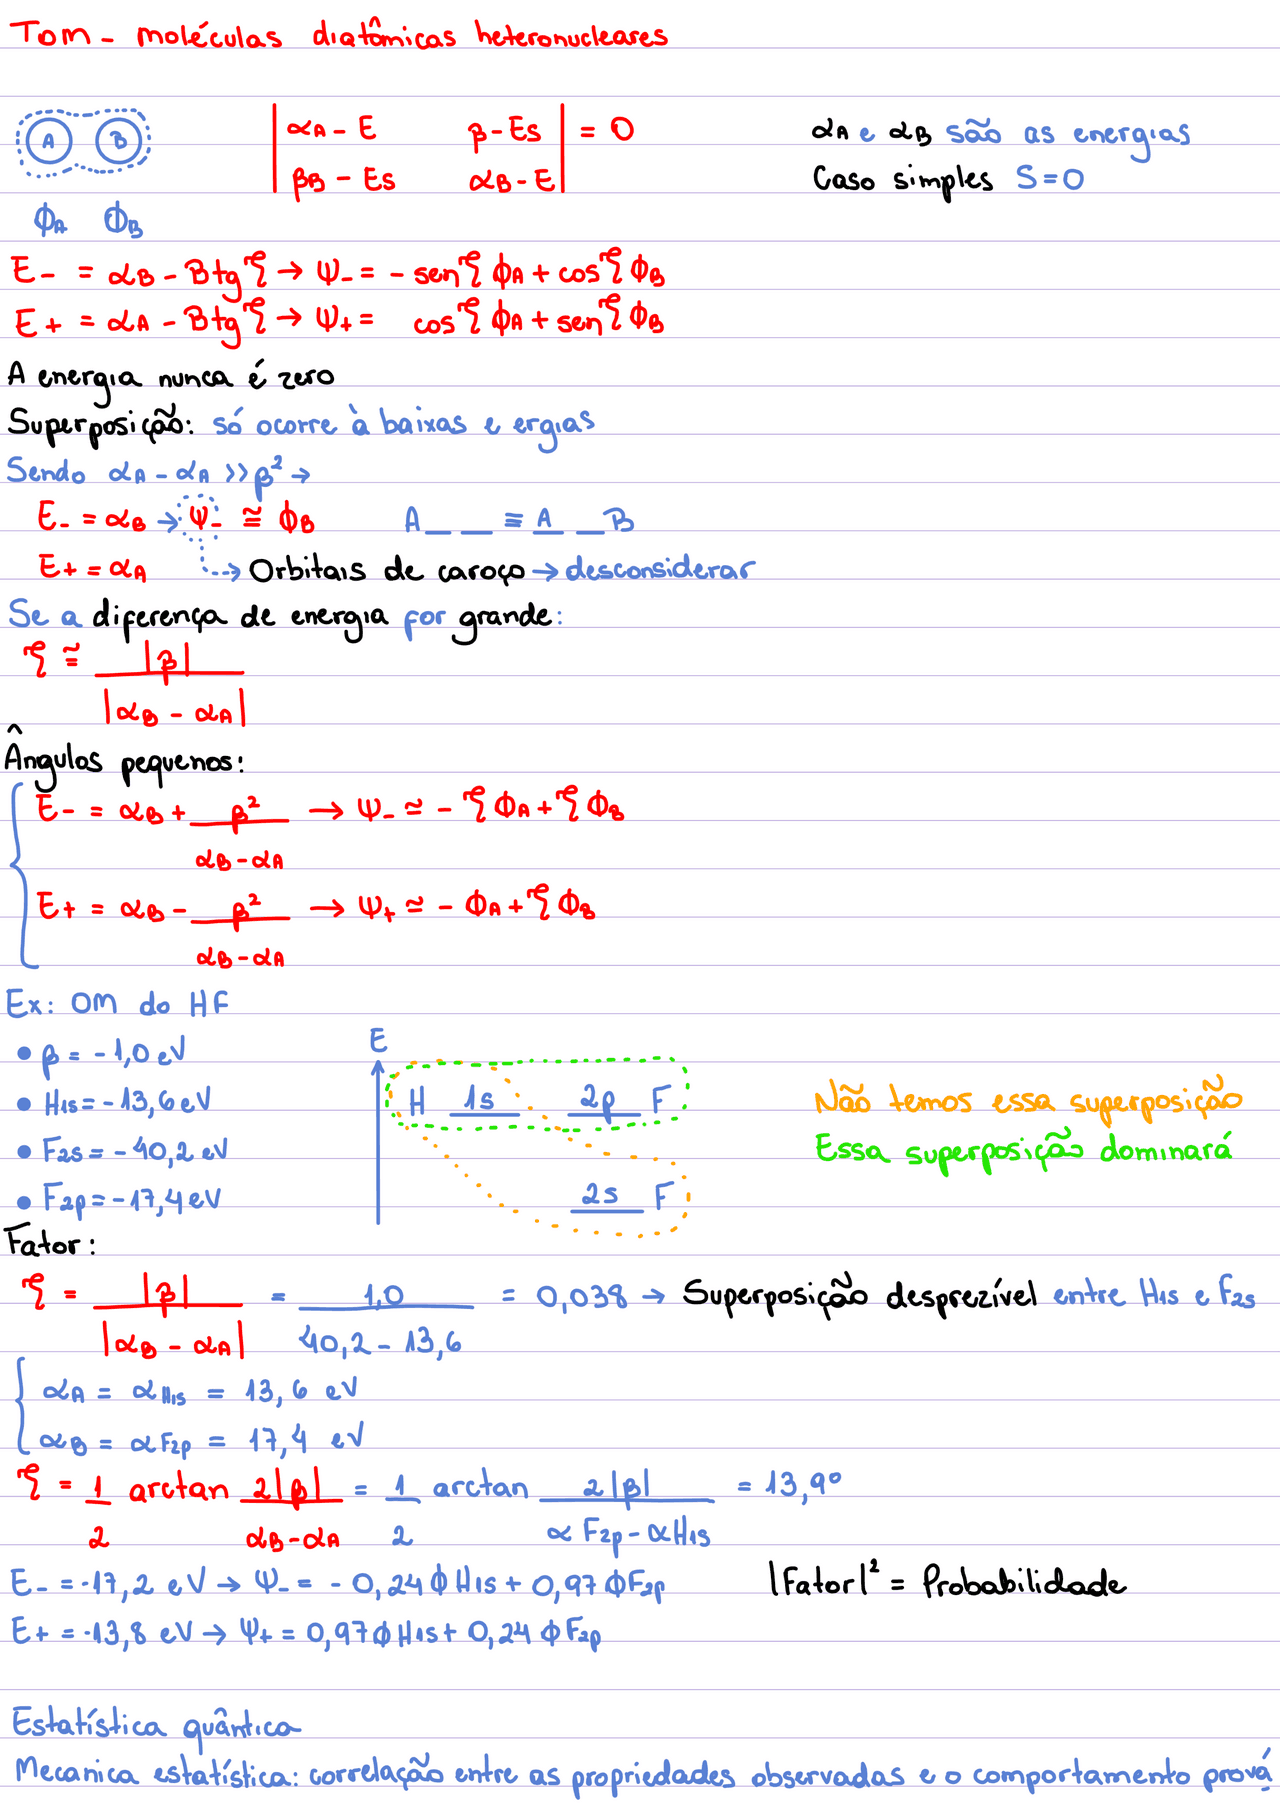 TOM - moléculas diatômicas heteronucleares
A B
| αA - E β - ES | = 0
αA e αB são as energias
| βB - ES αB - E |
Caso simples S=0
ϕA ϕB
E- = αB - Btg ζ → Ψ- = - sen ζ ϕA + cos ζ ϕB
E+ = αA - Btg ζ → Ψ+ = cos ζ ϕA + sen ζ ϕB
A energia nunca é zero
Superposição: só ocorre à baixas e ergias
Sendo αA - αA >> β² →
E- = αB → Ψ- ≅ ϕB A _ _ ≡ A _ B
E+ = αA → Orbitais de caroço → desconsiderar
Se a diferença de energia for grande:
ζ ≅ |β|
|αB - αA|
Ângulos pequenos:
E- = αB + β² → Ψ- ≃ - ζ ϕA + ζ ϕB
αB - αA
E+ = αB - β² → Ψ+ ≃ - ϕA + ζ ϕB
αB - αA
Ex: OM do HF
E
• β = - 1,0 eV
• H1s = - 13,6 eV
H 1s 2p F
Não temos essa superposição
• F2s = - 40,2 eV
Essa superposição dominará
• F2p = - 17,4 eV
2s F
Fator:
ζ = |β| = 1,0 = 0,038 → Superposição desprezível entre H1s e F2s
|αB - αA| 40,2 - 13,6
αA = αH1s = 13,6 eV
αB = αF2p = 17,4 eV
ζ = 1 arctan 2|β| = 1 arctan 2|β| = 13,9°
2 αB - αA 2 αF2p - αH1s
E- = -17,2 eV → Ψ- = - 0,24 ϕH1s + 0,97 ϕF2p |Fator|² = Probabilidade
E+ = -13,8 eV → Ψ+ = 0,97 ϕH1s + 0,24 ϕF2p
Estatística quântica
Mecanica estatística: correlação entre as propriedades observadas e o comportamento prová